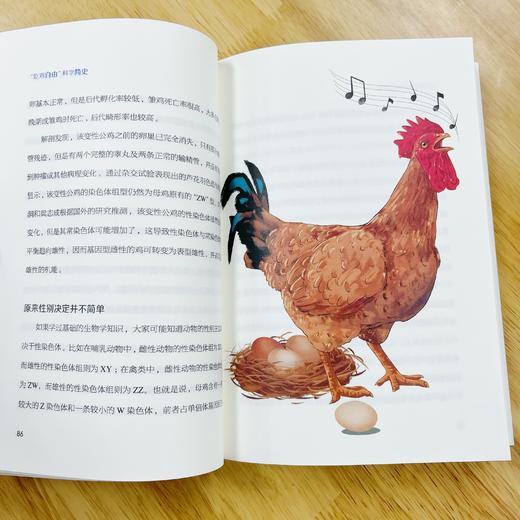 “吃鸡自由”科学简史
卵基本正常，但是后代孵化率较低，雏鸡死亡率很高，大
晚架或雏鸡时死亡，后代畸形率也较高。
解剖发现，该变性公鸡之前的卵巢已完全消失，只有
管残迹，但是有两个完整的睾丸及两条正常的输精管，并没有
到肿瘤或其他病理变化。通过杂交试验表现出的芦花羽色
显示，该变性公鸡的染色体组型仍然为母鸡原有的“ZW”型。
调和吴志成根据国外的研究推测，该变性公鸡的性染色体虽
变化，但是其常染色体可能增加了，这导致性染色体与常染色体
平衡趋向雄性，因而基因型雌性的鸡可转变为表型雄性，并
雄性的机能。
原来性别决定并不简单
如果学过基础的生物学知识，大家可能知道动物的性别
决于性染色体。比如在哺乳动物中，雌性动物的性染色体组
而雄性的性染色体组则为 XY；在禽类中，雌性动物的性染
为 ZW，而雄性的性染色体组则为 ZZ。也就是说，母鸡含有一
较大的 Z 染色体和一条较小的 W 染色体，前者占单倍体基因组
86